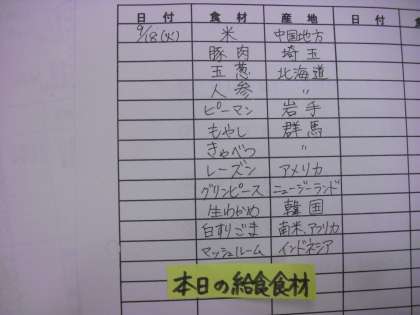 日付 食材 産地 日付
9/18(火) 米 中国地方
豚肉 埼玉
玉葱 北海道
人参 〃
ピーマン 岩手
もやし 群馬
きゃべつ 〃
レーズン アメリカ
グリンピース ニュージーランド
生わかめ 韓国
白すりごま 南米、アフリカ
マッシュルーム インドネシア
本日の給食食材